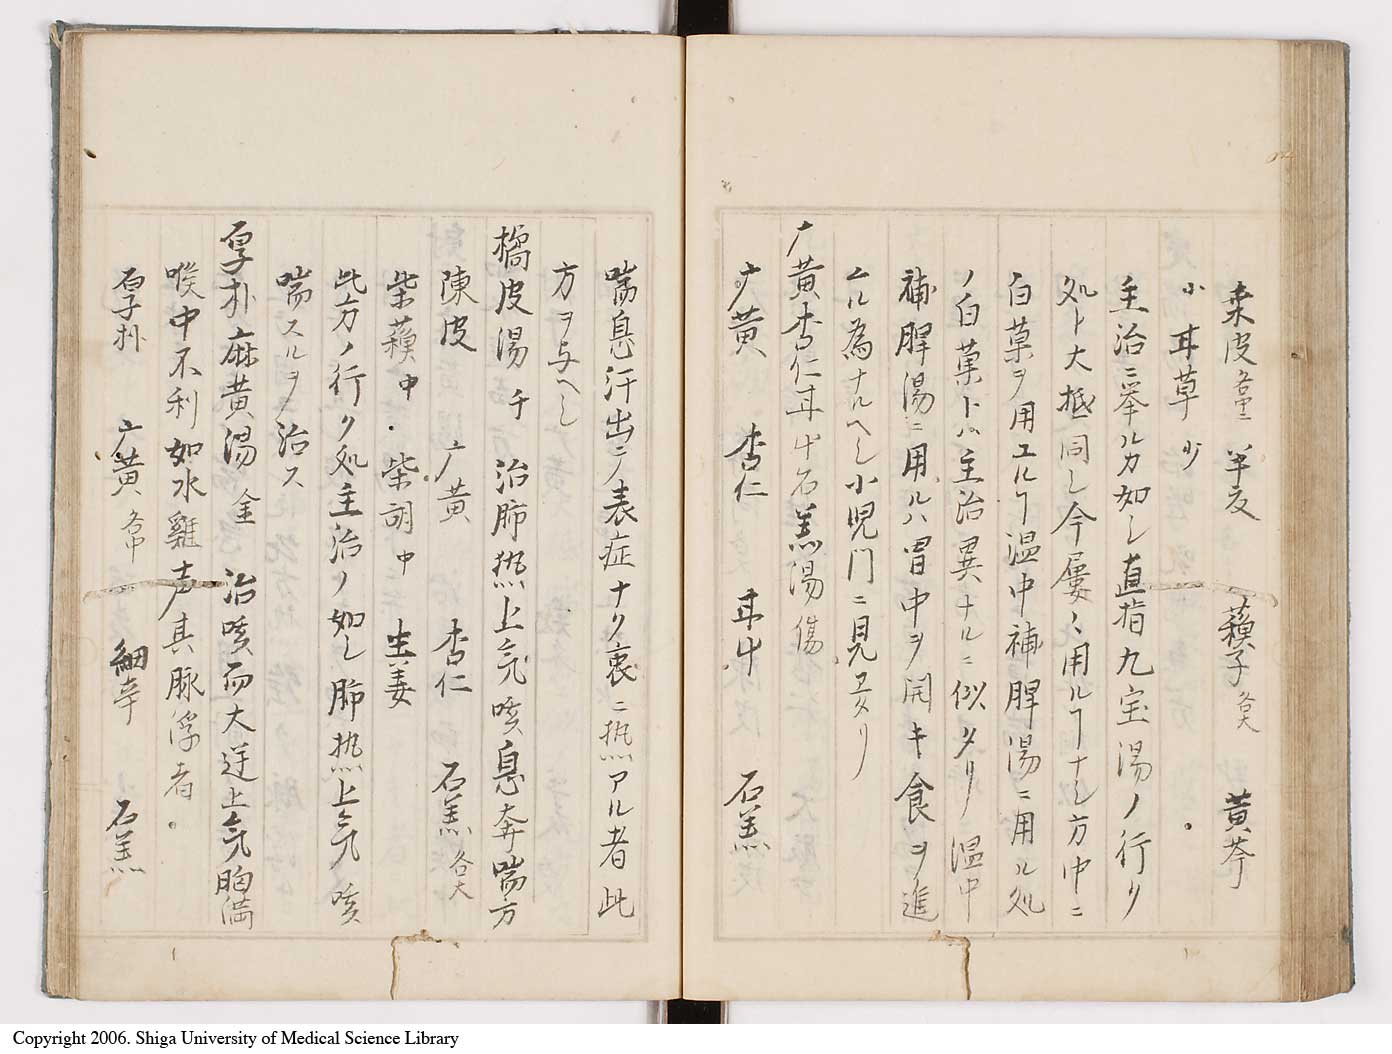 桑皮各量 半夏 蘓子各大 黄芩
小 甘草少 。
主治ニ挙ルカ如シ直指九宝湯ノ行ク
処ト大抵同シ今屢々用ルヿナシ方中ニ
白菓ヲ用ユルヿ温中補脾湯ニ用ル処
ノ白菓トハ主治異ナルニ似タリ温中
補脾湯ニ用ルハ胃中ヲ開キ食ヲ進
ムル為ナルヘシ小児門ニ見ヱタリ
广黄杏仁甘艸石羔湯傷
广黄 杏仁 甘艸 石羔
喘息汗出テ表症ナク裏ニ熱アル者此
方ヲ与ヘシ
橘皮湯 千 治肺熱上気咳息奔喘方
陳皮 广黄 杏仁 石羔各大
柴蘓中 。柴胡中 生姜
此方ノ行ク処主治ノ如シ肺熱上気咳
喘スルヲ治ス
厚朴麻黄湯 金 治咳而大逆上気胸満
喉中不利如水雞声其脈浮者。
厚朴 广黄各中 細辛 石羔
Copyright 2006. Shiga University of Medical Science Library